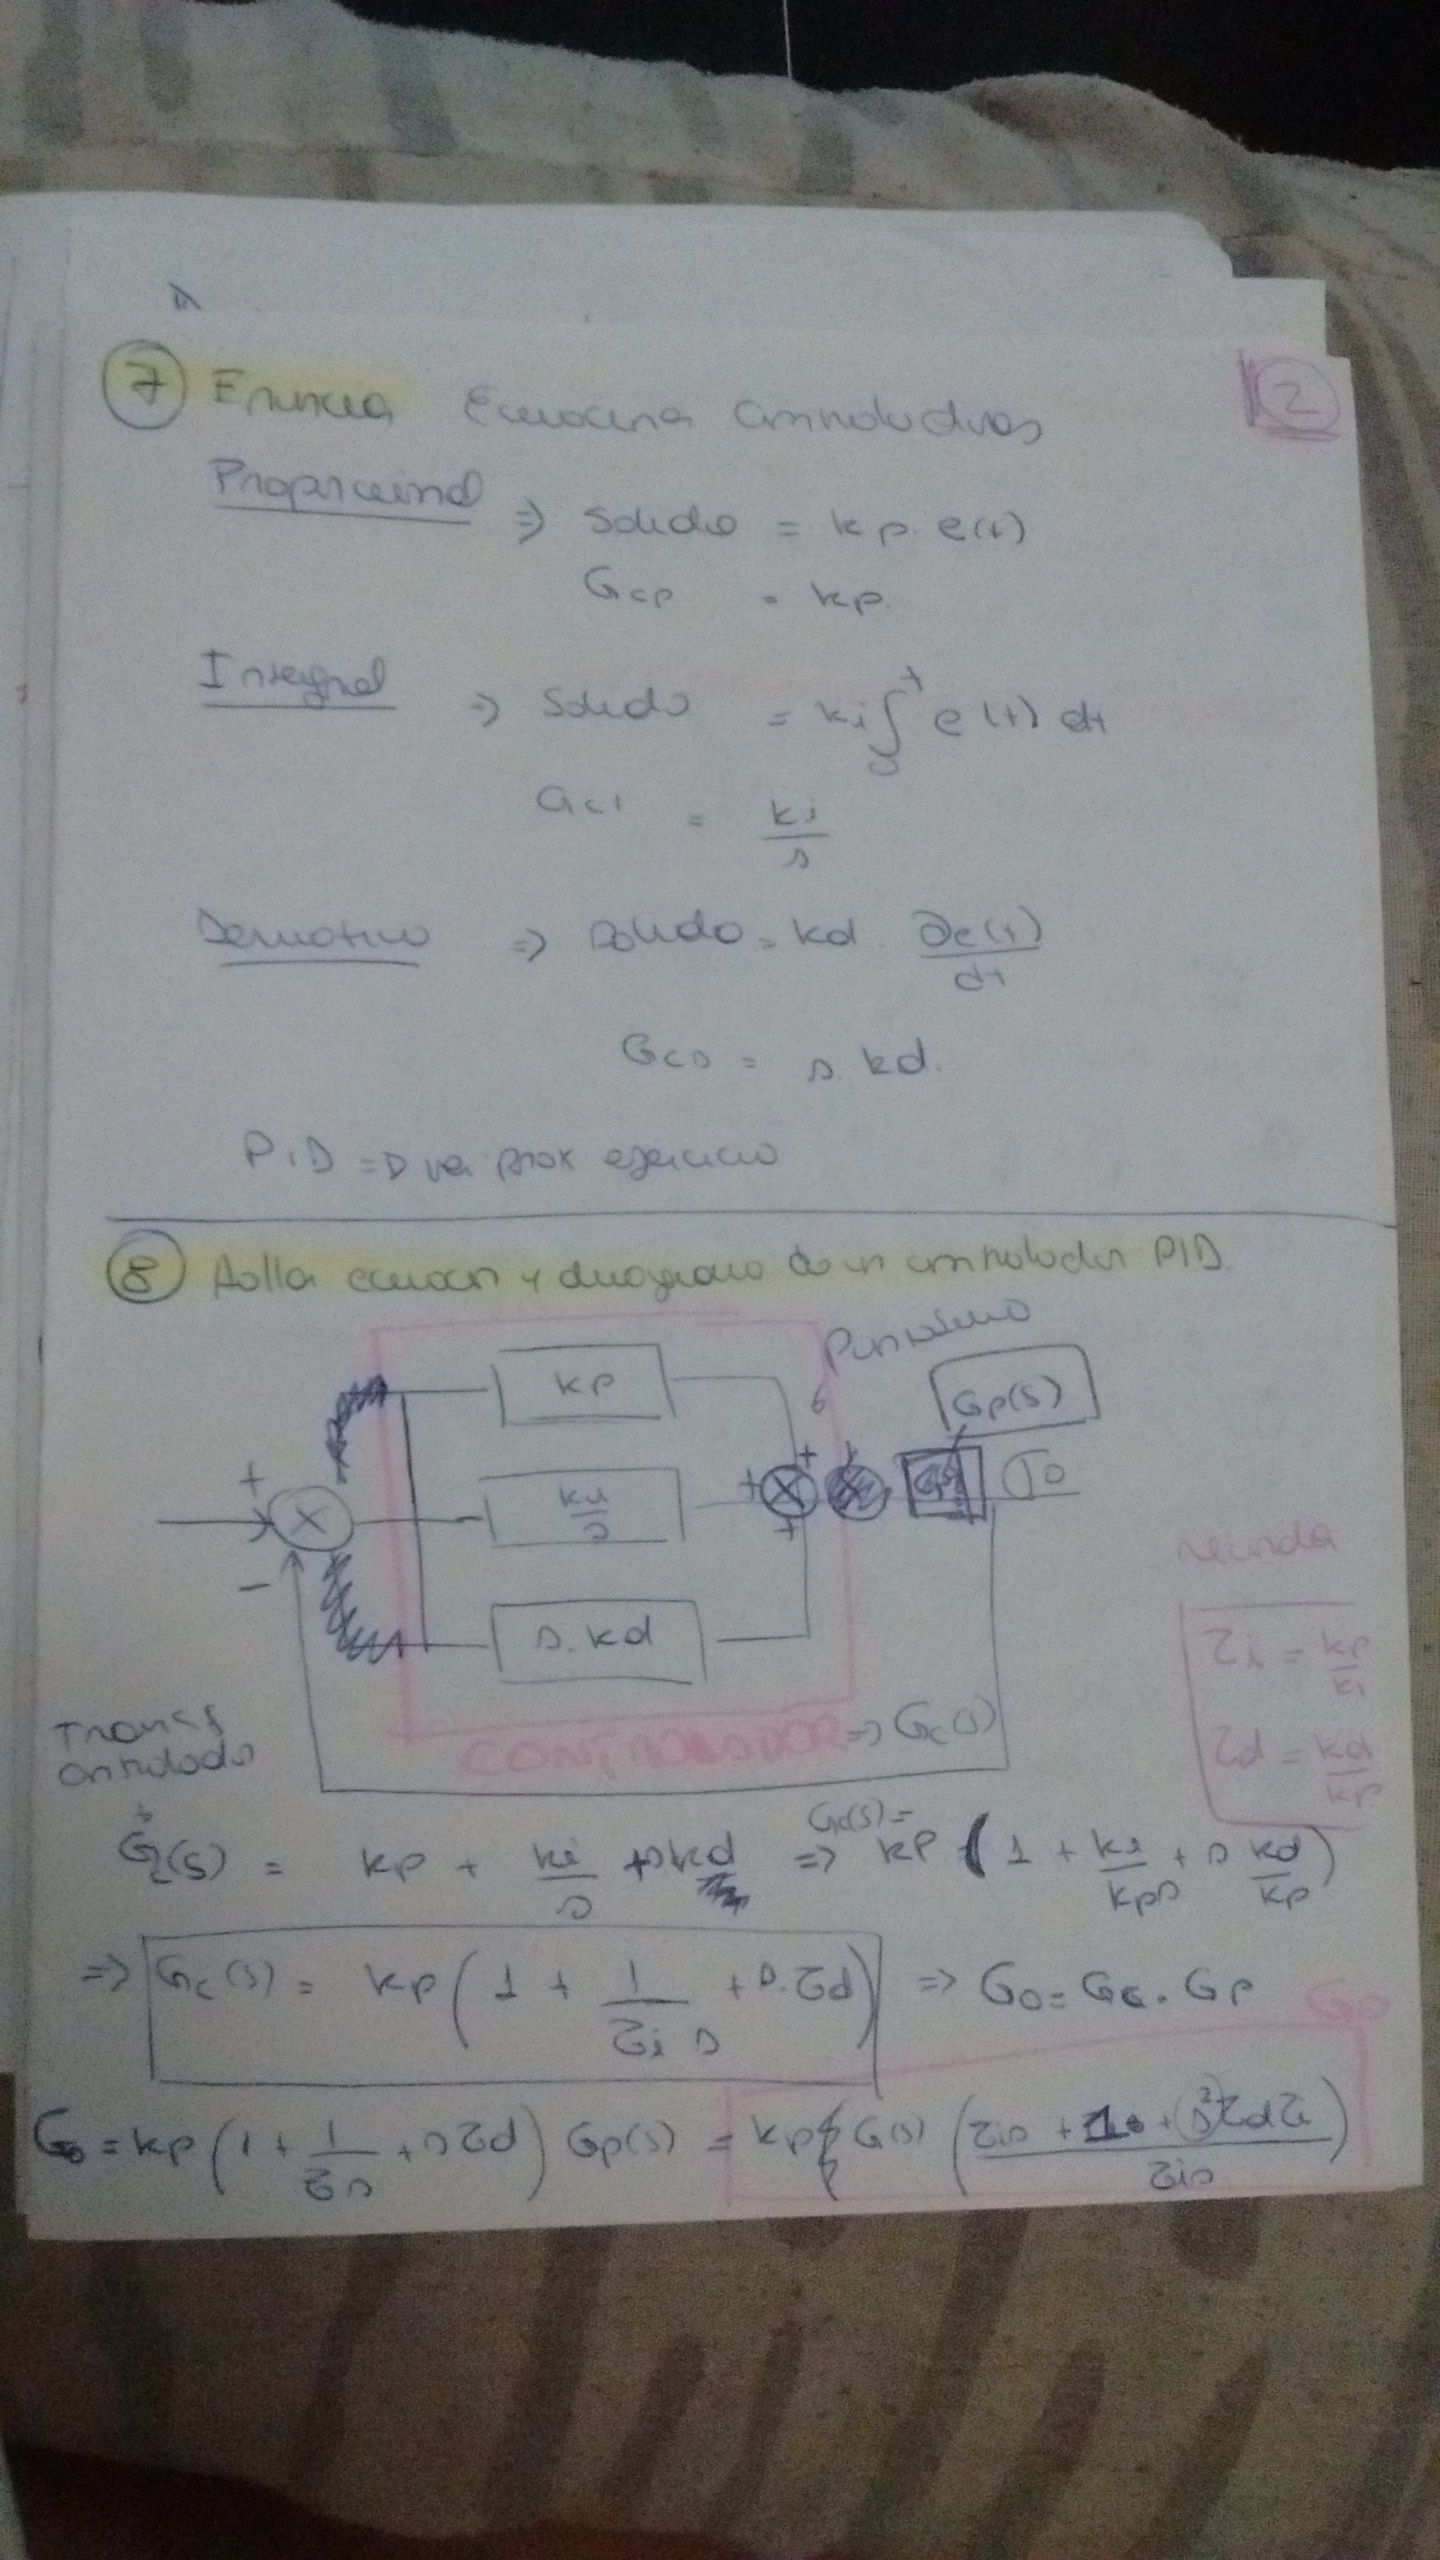 2
7 Enuncia Ecuaciones controladores
Proporcional => Salida = kp. e(t)
Gcp = kp.
Integral => Salida = ki ∫₀ᵗ e(t) dt
GcI = ki/s
Derivativo => salida = kd. ∂e(t)/dt
GcD = s. kd.
PID => ver prox ejercicio
8 Halla ecuacion y diagrama de un controlador PID.
kp
Gp(s)
+ - ki/s + + + To
s. kd
recorda
τi = kp/ki
τd = kd/kp
CONTROLADOR => Gc(s)
Transf
controlado
Gc(s) = kp + ki/s + skd => Gc(s) = kp (1 + ki/kps + s kd/kp)
=> Gc(s) = kp (1 + 1/τi s + s.τd) => Go = Gc . Gp
Go
Go = kp (1 + 1/τs + sτd) Gp(s) = kp G(s) (τis + 1 + s²τdτi / τis)